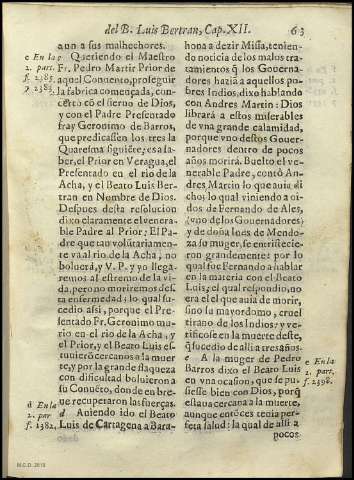 del B. Luis Bertran, Cap. XII. 63
aun a sus malhechores.
c Queriendo el Maestro
Fr. Pedro Martir Prior de
aquel Conuento, proseguir
la fabrica começada, con-
certò cō el sieruo de Dios,
y con el Padre Presentado
fray Geronimo de Barros,
que predicassen los tres la
Quaresma siguiẽte; es a sa-
ber, el Prior en Veragua, el
Presentado en el rio de la
Acha, y el Beato Luis Ber-
tran en Nombre de Dios.
Despues desta resolucion
dixo claramente el venera-
ble Padre al Prior: El Pa-
dre que tan volūtariamen-
te va al rio de la Acha, no
boluerá, y V. P. y yo llega-
remos al estremo de la vi-
da, pero no moriremos des-
ta enfermedad: lo qual su-
cedio assi, porque el Presen-
tado Fr. Geronimo mu-
rio en el rio de la Acha, y
el Prior, y el Beato Luis es-
tuuierõ cercanos a la muer
te, y por la grande flaqueza
con dificultad boluieron a
su Conuẽto, donde en bre-
ue recuperaron las fuerças.
d Auiendo ido el Beato
Luis de Cartagena a Bara-
c En la
2. part.
f. 2385.
d En la
2. par
f. 1382.
hona a dezir Missa, tenien-
do noticia de los malos tra-
tamientos q̃ los Gouerna-
dores hazia a aquellos po-
bres Indios, dixo hablando
con Andres Martin: Dios
librará a estos miserables
de vna grande calamidad,
porque vno destos Gouer-
nadores dentro de pocos
años morirà. Buelto el ve-
nerable Padre, contò An-
dres Martin lo que auia di
cho; lo qual viniendo a oi-
dos de Fernando de Ales,
vno de los Gouernadores,
y de doña Ines de Mendo-
za su muger, se entristecie-
ron grandemente: por lo
qual fue Fernando a hablar
en la materia con el Beato
Luis; el qual respondio, no
era el el que auia de morir,
sino su mayordomo, cruel
tirano de los Indios: y ve-
rificose en la muerte deste,
q̃ sucedio de alli a tres años.
e A la muger de Pedro
Barros dixo el Beato Luis
en vna ocasion, que se pu-
siesse bien con Dios, porq̃
estaua cercana a la muerte,
aunque entõces tenia per-
feta salud: la qual de alli a
pocos
e En la
2. part.
f. 2398.
M.C.D. 2018